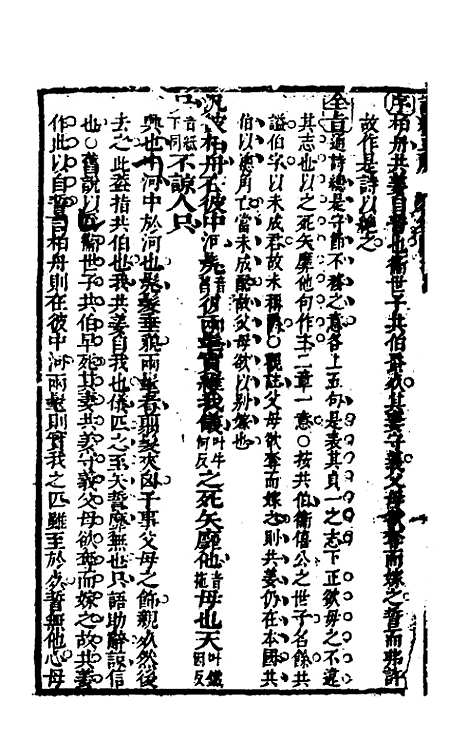 序柏舟共姜自誓也衞世子共伯蚤死其妻守義父母欲奪而嫁之誓而弗許
故作是詩以絶之
全旨通詩總是守節不移之意各上五句是表其貞一之志下正欲母之不違
其志也以之死矢靡他句作主二章一意○按共伯衞僖公之世子名餘共
謚伯字以未成君故未稱爵○觀註父母欲奪而嫁之則共姜仍在本國共
伯以總角亡當未成故父母欲以別嫁也
汎彼柏舟在彼中河髧彼兩髦實維我儀叶牛何反之死矢靡他音拖母也天叶鐵因反
只音紙下同不諒人只
興也中河中於河也髧髮垂貌兩髦者翦髮夾囟子事父母之飾親死然後
去之此蓋指共伯也我共姜自我也儀匹之至矢誓靡無也只語助辭諒信
也○舊說以爲衞世子共伯早死其妻共姜守義父母欲奪而嫁之故共姜
作此以自誓言柏舟則在彼中河兩髦則實我之匹雖至於死誓無他心母